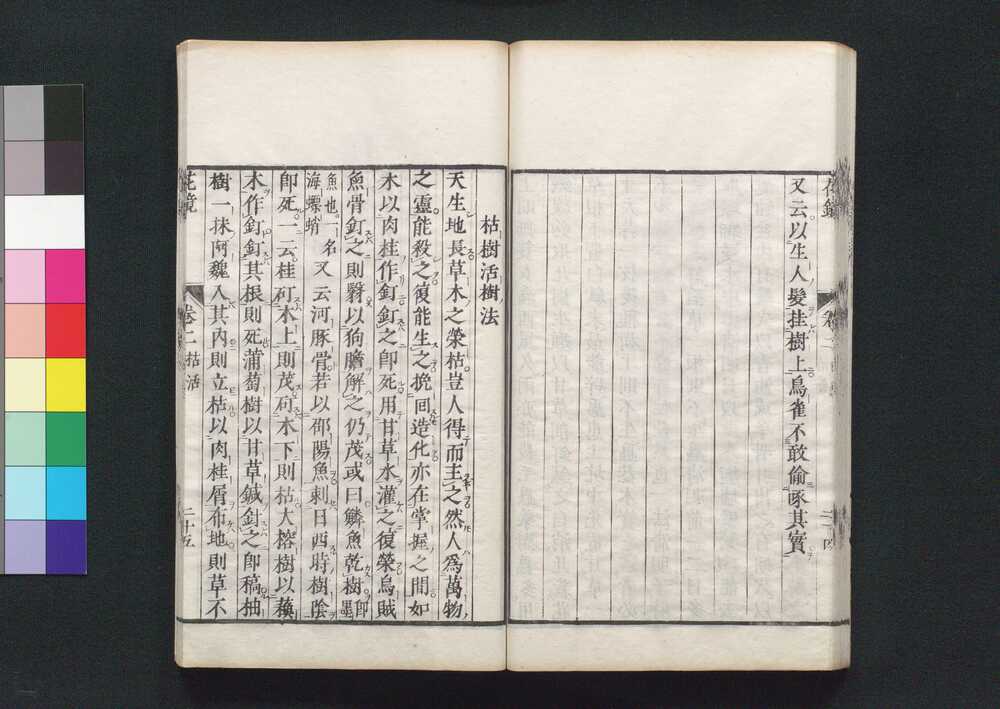 又云以生人髮挂樹上鳥雀不敢偷啄其實
枯樹活樹法
天生地長草木之榮枯豈人得而主之然人爲萬物
之靈能殺之復能生之挽回造化亦在掌握之間如
木以肉桂作釘釘之卽死用甘草水灌之復榮烏賊
魚骨釘之則以狗膽解之仍茂或曰鱗魚乾樹卽墨
魚也一名海螵蛸又云河豚骨若以邵陽魚刺日西時樹陰
卽死一云桂木上則茂木下則枯大榕樹以
木作釘釘其根則死蒲萄樹以甘草鍼針之卽稿柚
樹一抹阿魏入其內則立枯以肉桂屑布地則草不
花鏡 卷二 枯活 二十五